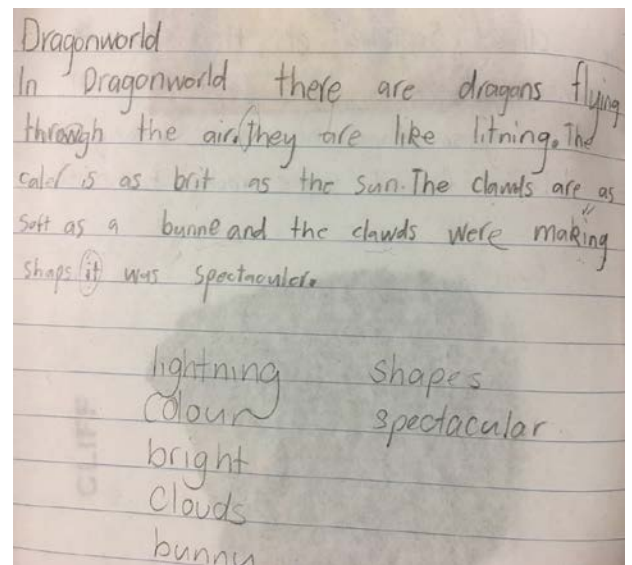 Dragonworld
In Dragonworld there are dragans flying
through the air. They are like litning. The
caler is as brit as the sun. The clawds are as
soft as a bunne and the clawds were making
shaps it was spectaculer.
lightning shapes
colour spectacular
bright
clouds
bunny
CLIFF